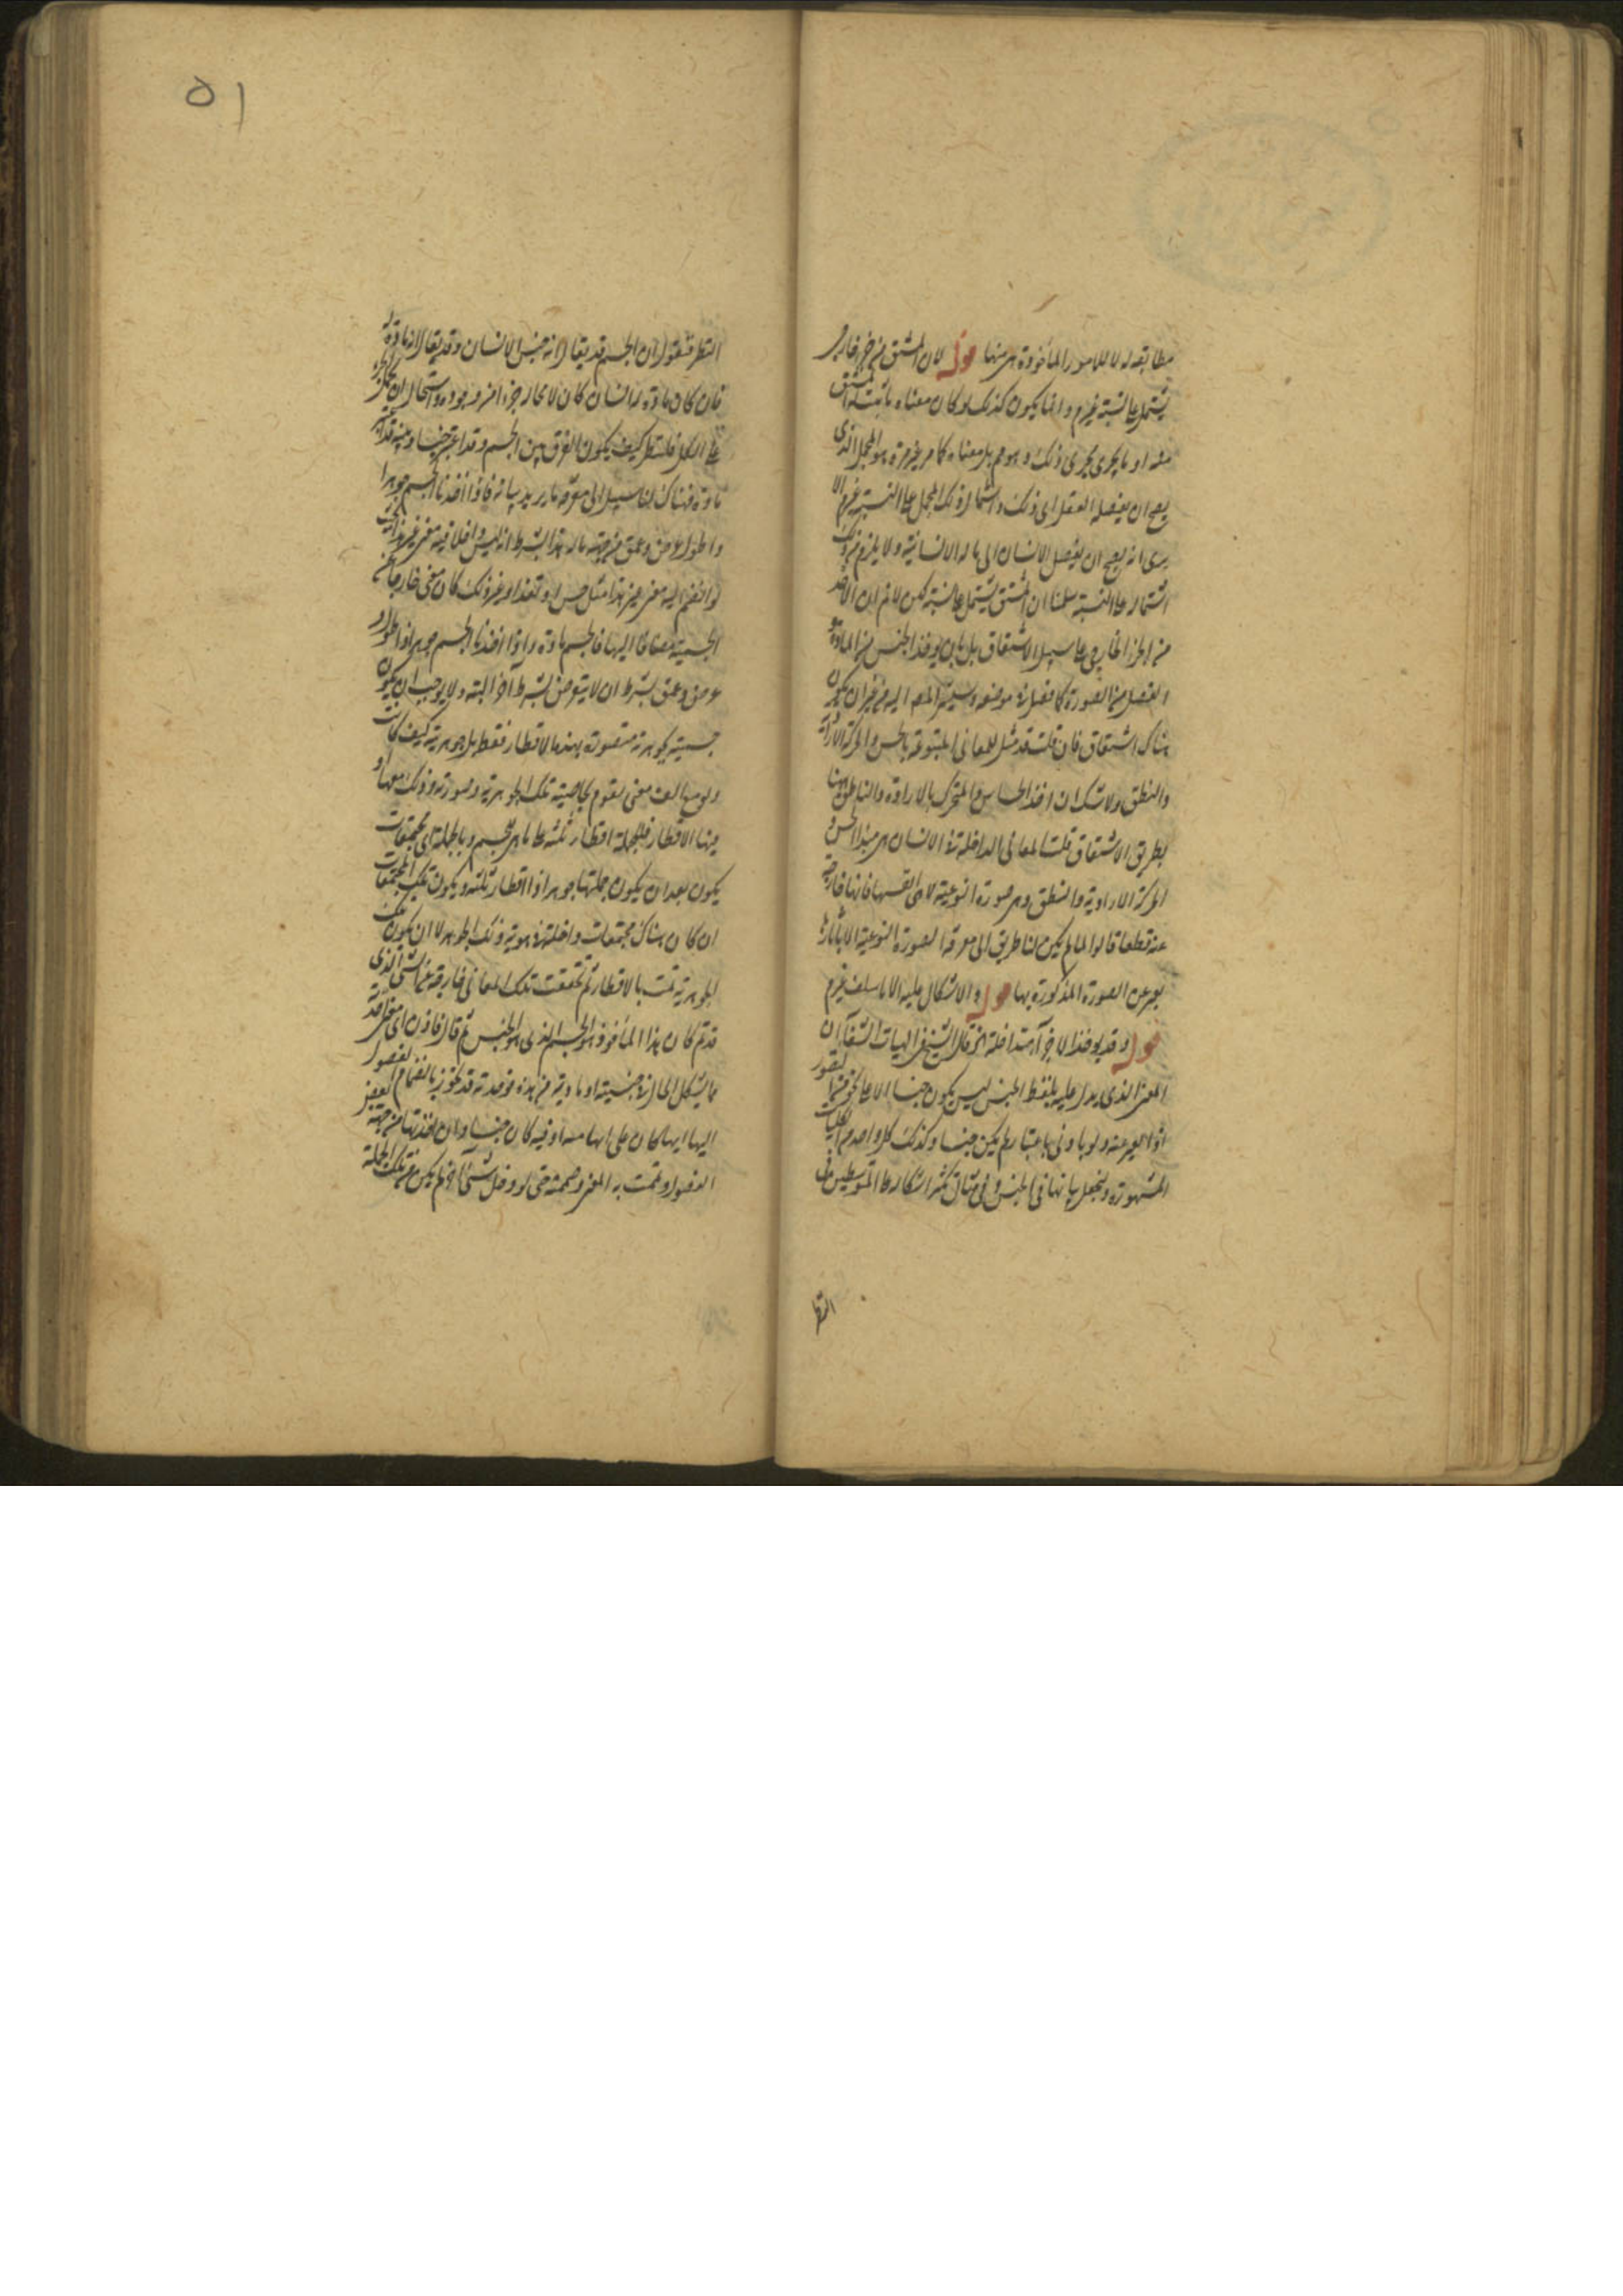 مطابقه له لا للامور المأخوذة هى منها قوله لان المشتق من جزء خارجى
يشتمل على النسبة غيرم وانما يكون كذلك لو كان معناه ما ثبت له المشتق
منه او ما يجرى مجرى ذلك وهو مم بل معناه كما مر غير مرة هو المجمل الذى
يصح ان يفصله العقل الى ذلك واشتمال ذلك المجمل على النسبة غيرم الا
يرى انه يصح ان يفصل الانسان الى ما له الانسانية ولا يلزم من ذلك
اشتماله على النسبة سلمنا ان المشتق يشتمل على النسبة لكن لا نم ان الاخذ
من الجزء الخارجى على سبيل الاشتقاق بل بان يوخذ الجنس من المادة و
الفصل من الصورة كما فصل فى موضعه وسيشير المص اليه من غير ان يكون
هناك اشتقاق فان قلت قد مثل للمعانى المتبوعة بالحس والحركة الارادية
والنطق ولا شك ان اخذ الحساس والمتحرك بالارادة والناطق منها
بطريق الاشتقاق قلت المعانى الداخلة فى الانسان هى مبدأ الحس و
الحركة الارادية والنطق وهى صورة النوعية لا هى انفسها فانها خارجة
عنه قطعا قالوا لما لم يكن لنا طريق الى معرفة الصورة النوعية الا باثارها
يعبر عن الصورة المذكورة بها قوله والاشكال عليه الا ما سلف غيرم
قوله وقد يوخذ الاجزآء متداخلة الخ قال الشيخ فى الهيات الشفآء ان
المعنى الذى يدل عليه بلفظ الجنس ليس يكون جنسا الا على نحو من التصور
اذا تغير عنه ولو بادنى باعتبار لم يكن جنسا وكذلك كل واحد من الكليات
المشهورة ولنجعل بياننا فى الجنس وفى مثال يكثر اشكاله على المتوسطين فى
النظر
النظر فنقول ان الجسم قد يقال انه جنس الانسان وقد يقال انه مادة له
فان كان مادة للانسان كان لا محالة جزءا من وجوده واستحال ان يحمل الجزء
على الكل فلننظر كيف يكون الفرق بين الجسم وقد اعتبر جنسا وبينه قد اعتبر
مادة فهناك لنا سبيل الى معرفة ما يريد بيانه فاذا اخذنا الجسم جوهرا
ذا طول وعرض وعمق من جهة ما له هذا بشرط انه ليس داخلا فيه معنى غير هذا بحيث
لو انضم اليه معنى غير هذا مثل حس او تغذ او غير ذلك كان معنى خارجا عن
الجسمية مضافا اليها فالجسم مادة واذا اخذنا الجسم جوهرا ذا طول و
عرض وعمق بشرط ان لا يتعرض بشرط آخر البتة ولا يوجب ان يكون
جسمية بجوهرية متصورة بهذه الاقطار فقط بل جوهرية كيف كانت
ولو مع الف معنى لقوم لخاصية تلك الجوهرية وصورة وذلك معها او
فيها الاقطار فللجملة اقطار ثلثة على ما هى للجسم وبالجملة اى مجتمعات
يكون بعد ان يكون جملتها جوهرا ذا اقطار ثلثة ويكون تلك المجتمعات
ان كان هناك مجتمعات داخلة فى هوية ذلك الجوهر لا ان يكون تلك
الجوهرية تمت بالاقطار ثم تحققت تلك المعانى خارجة عن الشى الذى
قد تم كان هذا المأخوذ هو الجسم الذى هو الجنس ثم قال فاذن اى معنى اخذته
مما يشكل الحال فى جنسيته او ماديته من هذه فوجدته قد يجوز بانضمام الفصول
اليها ايها كان على انها منه او فيه كان جنسا وان اخذتها من جهة بعض
الفصول وتممت به المعنى وختمته حتى لو دخل شى آخر لم يكن من تلك الجملة
٥١